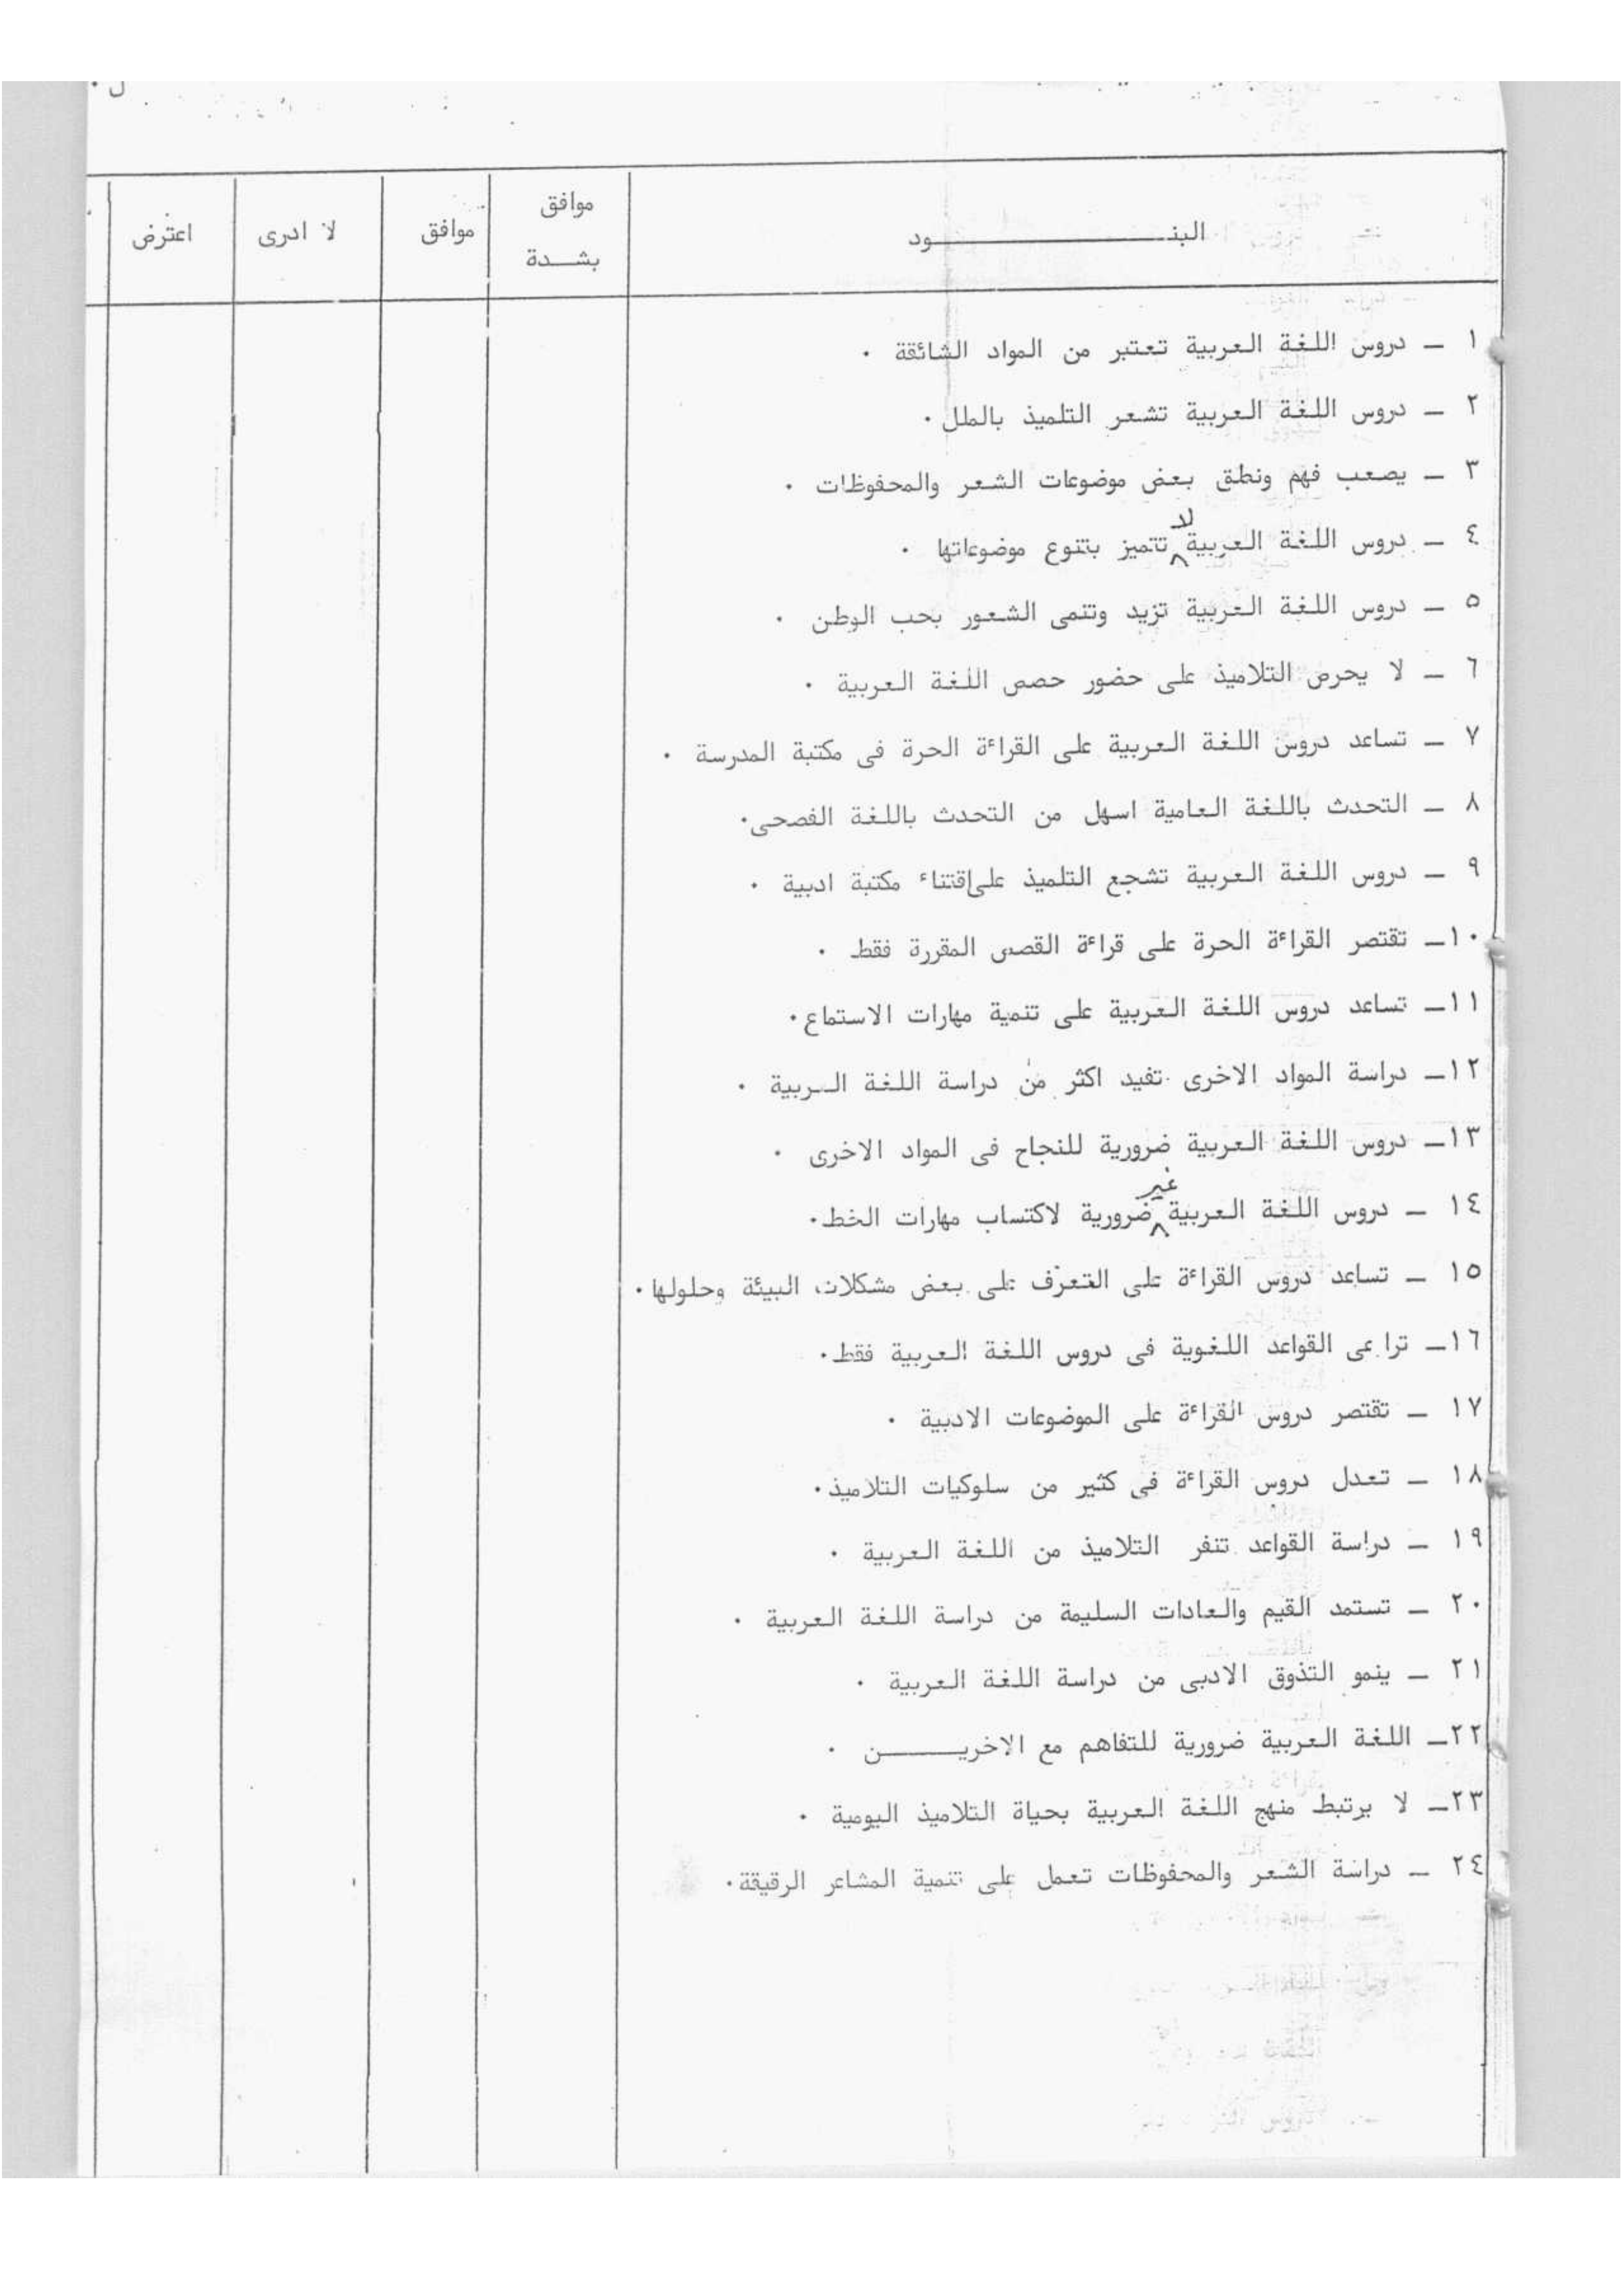 البنــــــــود موافق بشــدة موافق لا ادرى اعترض
١ ـ دروس اللغة العربية تعتبر من المواد الشائقة ٠
٢ ـ دروس اللغة العربية تشعر التلميذ بالملل ٠
٣ ـ يصعب فهم ونطق بعض موضوعات الشعر والمحفوظات ٠
٤ ـ دروس اللغة العربية لا تتميز بتنوع موضوعاتها ٠
٥ ـ دروس اللغة العربية تزيد وتنمى الشعور بحب الوطن ٠
٦ ـ لا يحرص التلاميذ على حضور حصص اللغة العربية ٠
٧ ـ تساعد دروس اللغة العربية على القراءة الحرة فى مكتبة المدرسة ٠
٨ ـ التحدث باللغة العامية اسهل من التحدث باللغة الفصحى٠
٩ ـ دروس اللغة العربية تشجع التلميذ على اقتناء مكتبة ادبية ٠
١٠ـ تقتصر القراءة الحرة على قراءة القصص المقررة فقط ٠
١١ـ تساعد دروس اللغة العربية على تنمية مهارات الاستماع٠
١٢ـ دراسة المواد الاخرى تفيد اكثر من دراسة اللغة العربية ٠
١٣ـ دروس اللغة العربية ضرورية للنجاح فى المواد الاخرى ٠
١٤ ـ دروس اللغة العربية غير ضرورية لاكتساب مهارات الخط٠
١٥ ـ تساعد دروس القراءة على التعرف على بعض مشكلات البيئة وحلولها٠
١٦ـ تراعى القواعد اللغوية فى دروس اللغة العربية فقط٠
١٧ ـ تقتصر دروس القراءة على الموضوعات الادبية ٠
١٨ ـ تعدل دروس القراءة فى كثير من سلوكيات التلاميذ٠
١٩ ـ دراسة القواعد تنفر التلاميذ من اللغة العربية ٠
٢٠ ـ تستمد القيم والعادات السليمة من دراسة اللغة العربية ٠
٢١ ـ ينمو التذوق الادبى من دراسة اللغة العربية ٠
٢٢ـ اللغة العربية ضرورية للتفاهم مع الاخريــــــن ٠
٢٣ـ لا يرتبط منهج اللغة العربية بحياة التلاميذ اليومية ٠
٢٤ ـ دراسة الشعر والمحفوظات تعمل على تنمية المشاعر الرقيقة٠